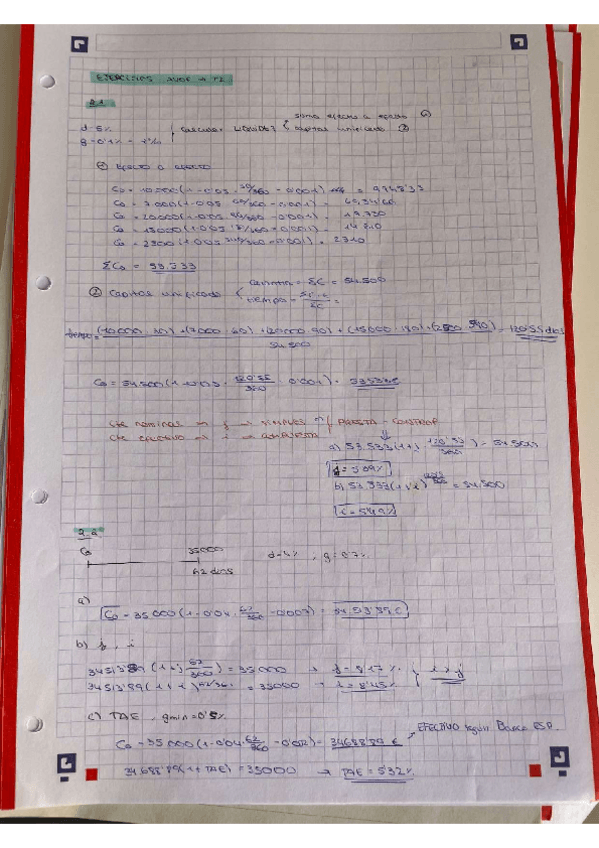 EJERCICIOS AULA → T2
2.1
d=5%
g=0'1% = 1‰
Calcular LÍQUIDO?
suma efecto a efecto ①
capital unificado ②
① Efecto a efecto
C₀ = 10.000(1-0'05 · 30/360 - 0'001) = 9948'33
C₀ = 7.000(1-0'05 · 60/360 - 0'001) =
C₀ = 20.000(1-0'05 · 90/360 - 0'001) = 19.730
C₀ = 15000(1-0'05 · 180/360 - 0'001) = 14.610
C₀ = 2500(1-0'05 /360 - 0'001) =
ΣC₀ = 53.533
② Capital unificado
cuantía = ΣC = 54.500
tiempo =
tiempo = (10000 · 30)+(7000 · 60)+(20000 · 90)+(15000 · 180)+(2500 · ) = 120'55 días
54.500
C₀ = 54.500(1-0'05 · 120'55/360 - 0'001) =
Cte nominal → j → SIMPLES
Cte efectivo → i → COMPUESTA
PRESTA = CONTRAP
a) 53.533(1+j · 120'55/360) = 54.500
j = 5'4%
b) 53.533(1+i) = 54.500
i = 5'49%
2.2
C₀ 35000
62 días
d=4% , g=0'7%
a)
C₀ = 35000(1-0'04 · 62/360 - 0'007) = 34.513'89€
b) j , i
34513'89(1+j 62/360) = 35000 → j = 8'17%
34513'89(1+i) = 35000 → i = 8'45%
i > j
c) TAE , gmin = 0'5%
C₀ = 35000(1-0'04 · 62/360 - 0'002) = 34688'89 €
EFECTIVO según Banco ESP.
34.688'89(1+TAE) = 35000 → TAE = 5'32%